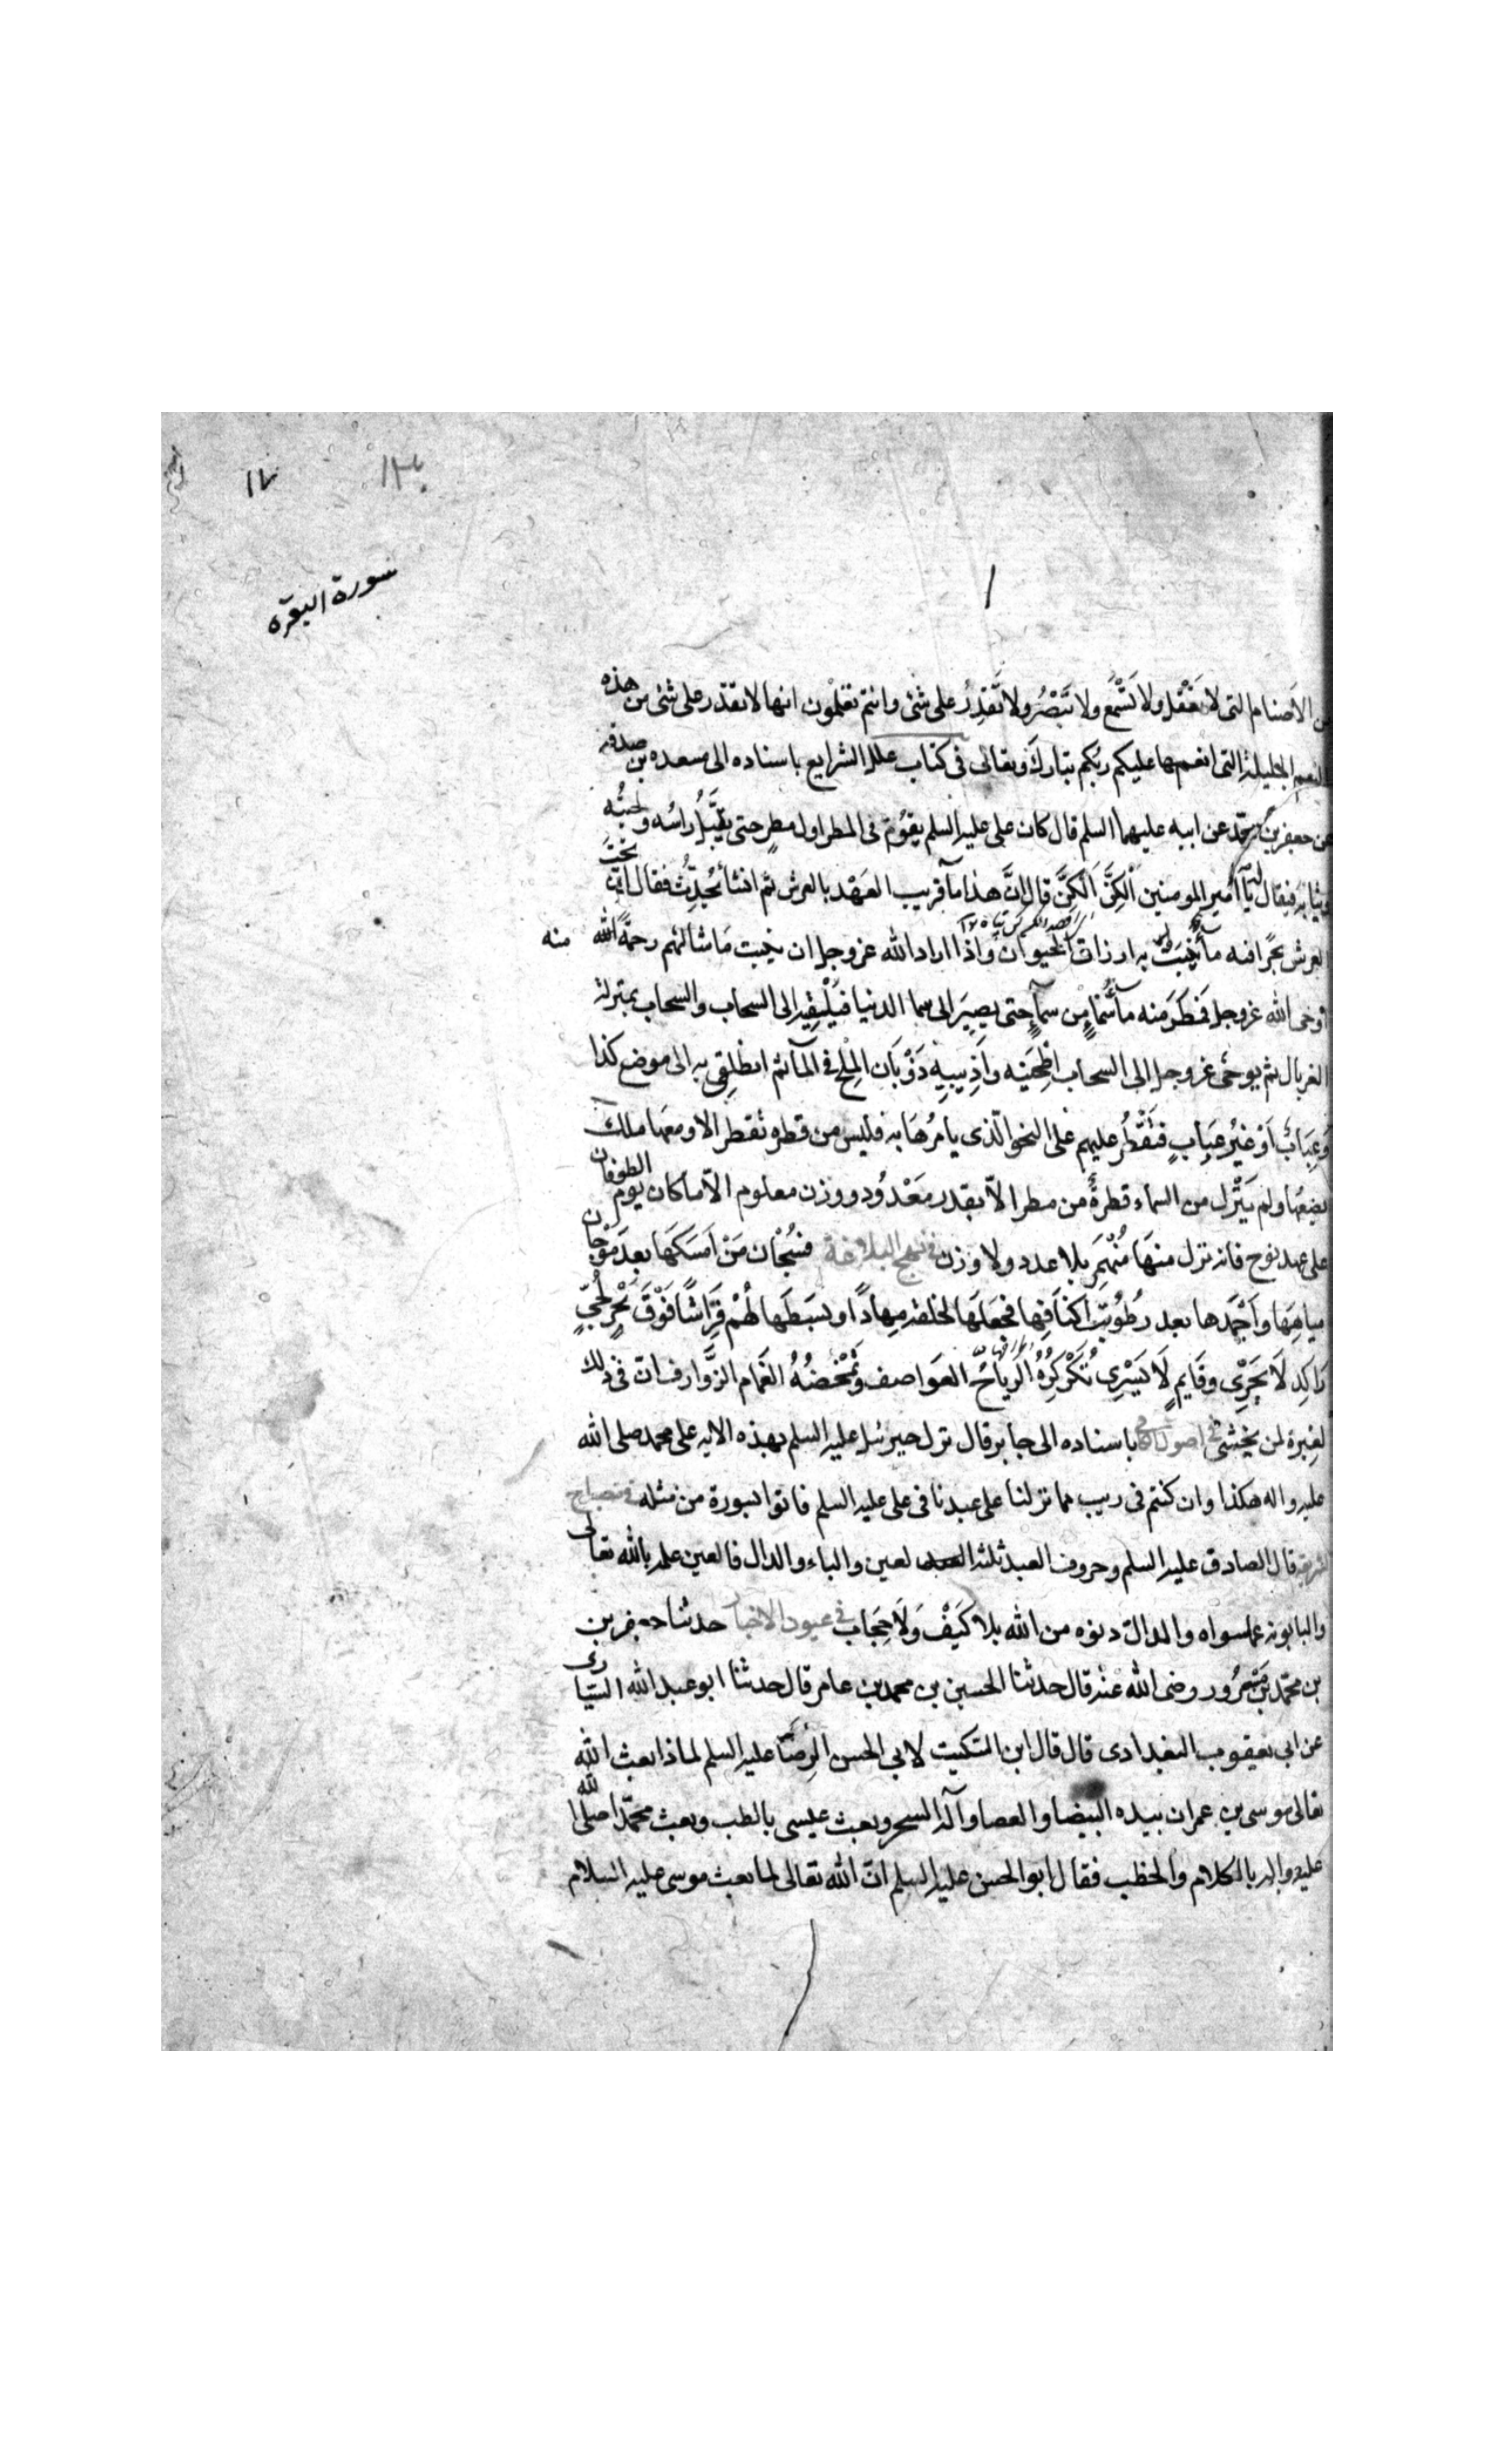 سورة البقرة
من الأصنام التى لا تعقل ولا تَسْمَع ولا تَبْصُرُ ولا تَقْدِرُ على شئى وانتم تعلمون انها لا تقدر على شئى من هذه
النعم الجليلة التى انعمها عليكم ربكم تبارك وتعالى فى كتاب علل الشرايع باسناده الى مسعده بن صدقه
عن جعفر بن محمّد عن ابيه عليهما السلم قال كان على عليه السلم يقوُم فى المطر اول مطرٍ حتى يبتلّ راسُه ولحيتُه
وثيابه فيقال له يا امير المومنين الكِنَّ الكِنَّ قال انَّ هذا مآ قريب العَهْد بالعرش ثم انشأ يُحدِّث فقال ان تحت
العرش بحرًا فيه مآ يُنبِتُ به ارزاق الحيوان واذا اراد الله عز وجل ان ينبت ما شا لهم رحمةً منه
أوحى الله عز وجل فمَطَرَ منه ماشآ مِن سمآءٍ حتى يصِيرَ الى سما الدنيا فيُلْقِيه الى السحاب والسحاب بمنزلة
الغربال ثم يوحى عز وجل الى السحاب اطْحَنِيه واَذِيبيِهِ ذَوْبَان المِلْح فى المآ ثم انطلِقى به الى موضع كذا
وعُبَابٌ اَوْ غيرُ عبابٍ فتَقْطُر عليهم على النحو الّذى يامرُهَا به فليس من قطره تقطر الا ومعها ملك
يضعُها ولم يَنْزِل من السماء قطرةٌ من مطر الاّ بقدر مَعْدُود ووزن معلوم الاّ ما كان يوم الطوفان
على عهد نوح فانه نزل منها مُنْهَمِر بلا عدد ولا وزن فى نهج البلاغة فسُبْحَان مَنْ اَمسَكَهَا بعدَ مَوَجَان
مياهِهَا واَجْمَدها بعد رطُوبَة اكنافِها فجعلَهَا لخلقه مِهادًا وبَسَطَها لهُمْ فِرَاشًا فَوْقَ بَحْرٍ لُجّىٍ
رَاكِدٍ لَا يَجْرِى وقَايمٍ لَا يَسْرِى تُكَرْكِرُهُ الرِّيَاحُ العَواصف وتَمْخُضُهُ الغَمَام الزَّوارف انّ فى ذلك
لعِبرة لمن يخشى فى اصول كافى باسناده الى جابر قال نزل جبرئيل عليه السلم بهذه الايه على محمد صلى الله
عليه واله هكذا وان كنتم فى ريب مما نزلنا على عبدنا فى على عليه السلم فاتوا بسورة من مثله فى مصباح
الشريعة قال الصادق عليه السلم وحروف العبد ثلثه العين والباء والدال فالعين علمه بالله تعالى
والبا بونه عما سواه والدال دنوه من الله بلا كَيْفَ وَلَا حِجَاب فى عيون الاخبار حدثنا جعفر بن
بن محمّد بن مَسْرُور رضى الله عنه قال حدثنا الحسين بن محمد بن عامر قال حدثنا ابو عبد الله السّيارى
عن ابى يعقوب البغدادى قال قال ابن السّكيت لابى الحسن الرِضَا عليه السلم لماذا بعث الله
تعالى موسى بن عمران بيده البيضا والعصا وآلة السحر وبعث عيسى بالطب وبعث محمّدا صلى الله
عليه واله بالكلام والخطب فقال ابو الحسن عليه السلم انّ الله تعالى لما بعث موسى عليه السلام